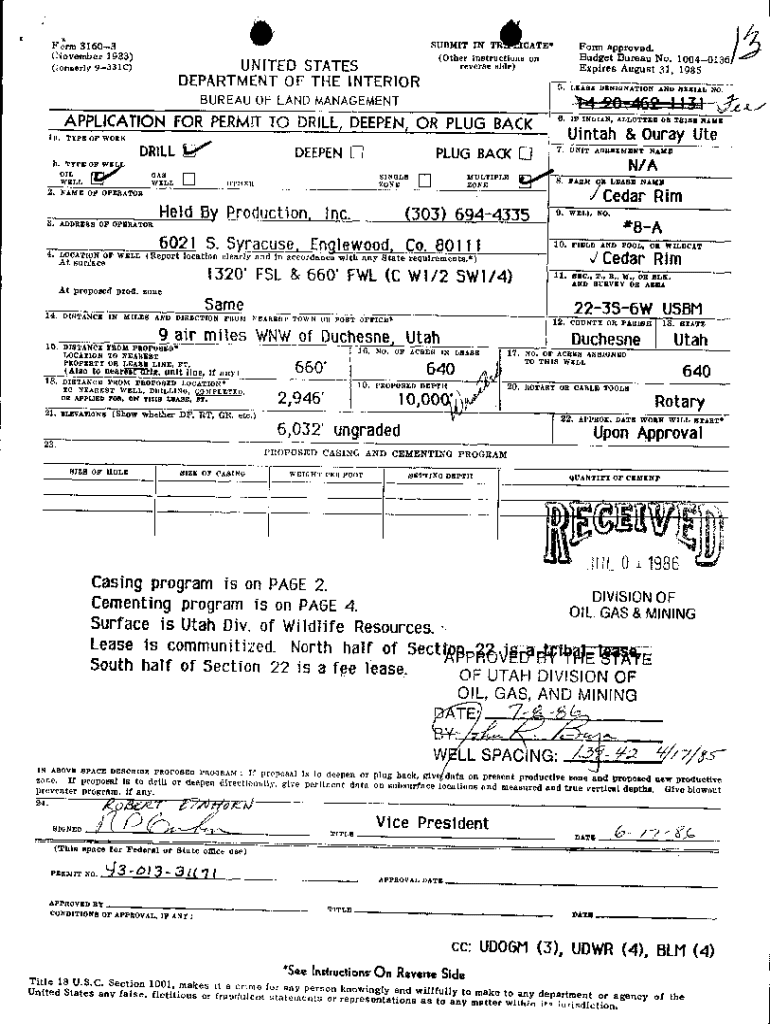 13
Form 3160-3
(November 1983)
(formerly 9-331C)
UNITED STATES
DEPARTMENT OF THE INTERIOR
BUREAU OF LAND MANAGEMENT
SUBMIT IN TRIPLICATE*
(Other instructions on
reverse side)
Form approved.
Budget Bureau No. 1004-0136
Expires August 31, 1985
5. LEASE DESIGNATION AND SERIAL NO.
14-20-462-1131 Fee
APPLICATION FOR PERMIT TO DRILL, DEEPEN, OR PLUG BACK
6. IF INDIAN, ALLOTTEE OR TRIBE NAME
Uintah & Ouray Ute
1a. TYPE OF WORK
DRILL DEEPEN PLUG BACK
7. UNIT AGREEMENT NAME
N/A
b. TYPE OF WELL
OIL WELL GAS WELL OTHER SINGLE ZONE MULTIPLE ZONE
8. FARM OR LEASE NAME
Cedar Rim
2. NAME OF OPERATOR
Held By Production, Inc. (303) 694-4335
9. WELL NO.
#8-A
3. ADDRESS OF OPERATOR
6021 S. Syracuse, Englewood, Co. 80111
10. FIELD AND POOL, OR WILDCAT
Cedar Rim
4. LOCATION OF WELL (Report location clearly and in accordance with any State requirements.*)
At surface
1320' FSL & 660' FWL (C W1/2 SW1/4)
11. SEC., T., R., M., OR BLK.
AND SURVEY OR AREA
At proposed prod. zone
Same
22-3S-6W USBM
14. DISTANCE IN MILES AND DIRECTION FROM NEAREST TOWN OR POST OFFICE*
9 air miles WNW of Duchesne, Utah
12. COUNTY OR PARISH 13. STATE
Duchesne Utah
15. DISTANCE FROM PROPOSED*
LOCATION TO NEAREST
PROPERTY OR LEASE LINE, FT.
(Also to nearest drlg. unit line, if any)
660'
16. NO. OF ACRES IN LEASE
640
17. NO. OF ACRES ASSIGNED
TO THIS WELL
640
18. DISTANCE FROM PROPOSED LOCATION*
TO NEAREST WELL, DRILLING, COMPLETED,
OR APPLIED FOR, ON THIS LEASE, FT.
2,946'
19. PROPOSED DEPTH
10,000'
20. ROTARY OR CABLE TOOLS
Rotary
21. ELEVATIONS (Show whether DF, RT, GR, etc.)
6,032' ungraded
22. APPROX. DATE WORK WILL START*
Upon Approval
23. PROPOSED CASING AND CEMENTING PROGRAM
SIZE OF HOLE SIZE OF CASING WEIGHT PER FOOT SETTING DEPTH QUANTITY OF CEMENT
RECEIVED
JUL 01 1986
DIVISION OF
OIL, GAS & MINING
Casing program is on PAGE 2.
Cementing program is on PAGE 4.
Surface is Utah Div. of Wildlife Resources.
Lease is communitized. North half of Section 22 is a tribal lease.
South half of Section 22 is a fee lease.
APPROVED BY THE STATE
OF UTAH DIVISION OF
OIL, GAS, AND MINING
DATE: 7-8-86
BY: John R. Baza
WELL SPACING: 139-42 4/17/85
IN ABOVE SPACE DESCRIBE PROPOSED PROGRAM: If proposal is to deepen or plug back, give data on present productive zone and proposed new productive
zone. If proposal is to drill or deepen directionally, give pertinent data on subsurface locations and measured and true vertical depths. Give blowout
preventer program, if any.
24.
ROBERT EINHORN
SIGNED TITLE Vice President DATE 6-17-86
(This space for Federal or State office use)
PERMIT NO. 43-013-31171 APPROVAL DATE
APPROVED BY TITLE DATE
CONDITIONS OF APPROVAL, IF ANY:
cc: UDOGM (3), UDWR (4), BLM (4)
*See Instructions On Reverse Side
Title 18 U.S.C. Section 1001, makes it a crime for any person knowingly and willfully to make to any department or agency of the
United States any false, fictitious or fraudulent statements or representations as to any matter within its jurisdiction.